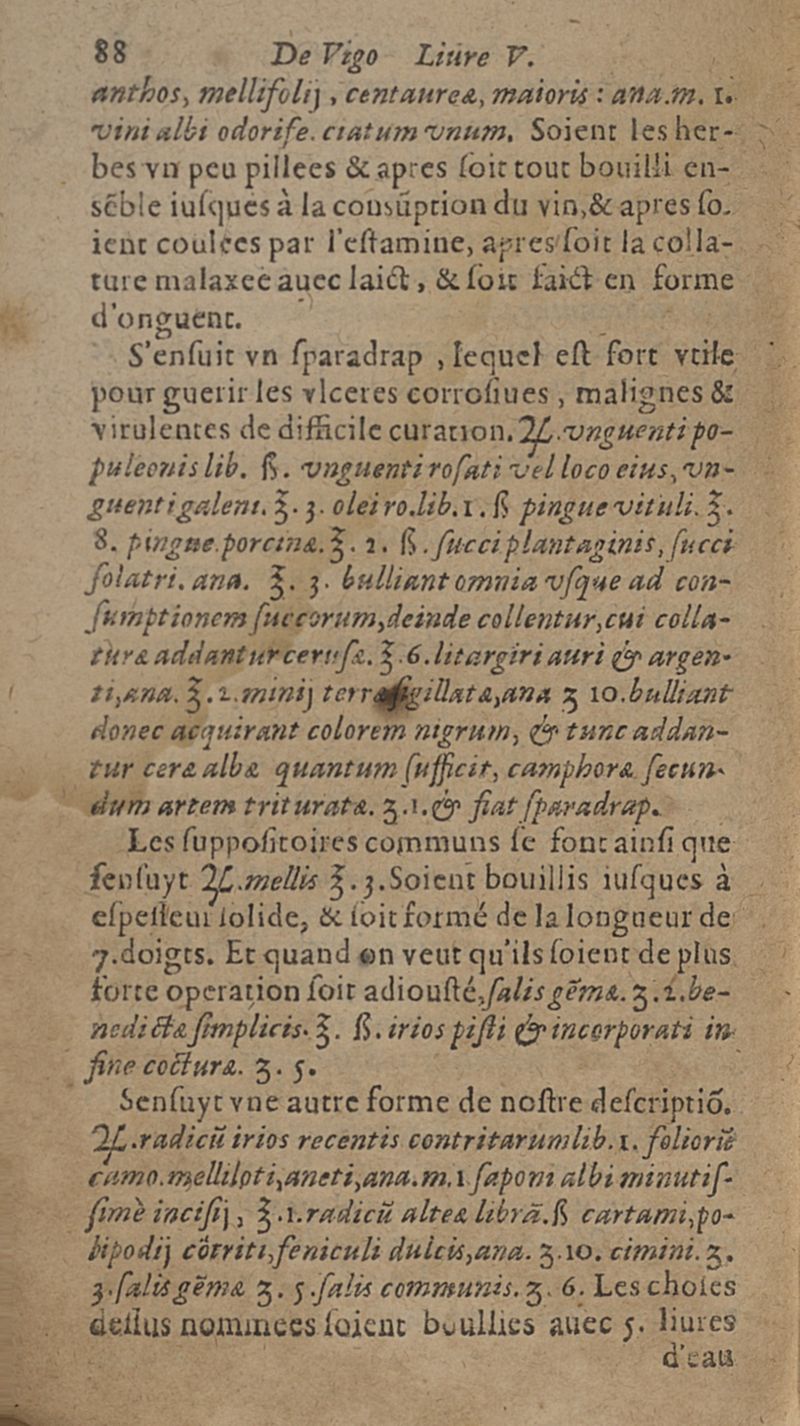 88 De Vigo Liure V.
anthos, mellifolij, centaureæ, maioris : ana.m. 1.
vini albi odorife. ciatum vnum. Soient les her-
bes vn peu pillees & apres ſoit tout bouilli en-
sẽble iuſques à la consũption du vin,& apres ſo-
ient coulées par l'eſtamine, apres ſoit la colla-
ture malaxee auec laict, & ſoit faict en forme
d'onguent.
S'enſuit vn ſparadrap, lequel eſt fort vtile
pour guerir les vlceres corroſiues, malignes &
virulentes de difficile curation. ℞.vnguenti po-
puleonis lib. ß. vnguenti roſati vel loco eius, vn-
guenti galeni. ℥. 3. olei ro.lib.1. ß pingue vituli. ℥.
8. pingue.porcinæ.℥. 2. ß. ſucci plantaginis, ſucci
ſolatri. ana. ℥. 3. bulliant omnia vſque ad con-
ſumptionem ſuccorum,deinde collentur,cui colla-
turæ addantur ceruſæ.℥.6.litargiri auri & argen-
ti,ana.℥.2.minij terræ ſigillatæ,ana ʒ 10.bulliant
donec acquirant colorem nigrum, & tunc addan-
tur ceræ albæ quantum ſufficit, camphoræ ſecun-
dum artem trituratæ. ʒ.1.& fiat ſparadrap.
Les ſuppoſitoires communs ſe font ainſi que
ſenſuyt ℞.mellis ℥.3.Soient bouillis iuſques à
eſpeſſeur ſolide, & ſoit formé de la longueur de
7.doigts. Et quand on veut qu'ils ſoient de plus
forte operation ſoit adiouſté,ſalis gẽmæ.ʒ.1.be-
nedictæ ſimplicis.℥. ß.irios piſti & incorporati in
fine cocturæ. ʒ. 5.
Senſuyt vne autre forme de noſtre deſcriptiõ.
℞.radicũ irios recentis contritarum lib.1. foliorũ
camo.melliloti,aneti,ana.m.1 ſaponi albi minutiſ-
ſimè inciſij, ℥.1.radicũ alteæ librã.ß cartami,po-
lipodij cõtriti,feniculi dulcis,ana. ʒ.10. cimini.ʒ.
3.ſalis gẽmæ ʒ. 5.ſalis communis.ʒ. 6. Les choſes
deſſus nommees ſoient boullies auec 5. liures
d'eau